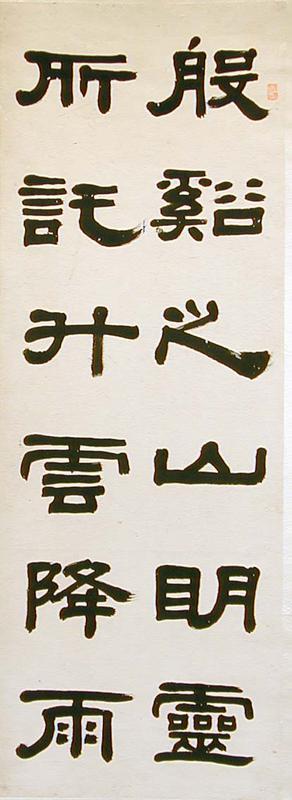 般谿之山明靈
所託升雲降雨